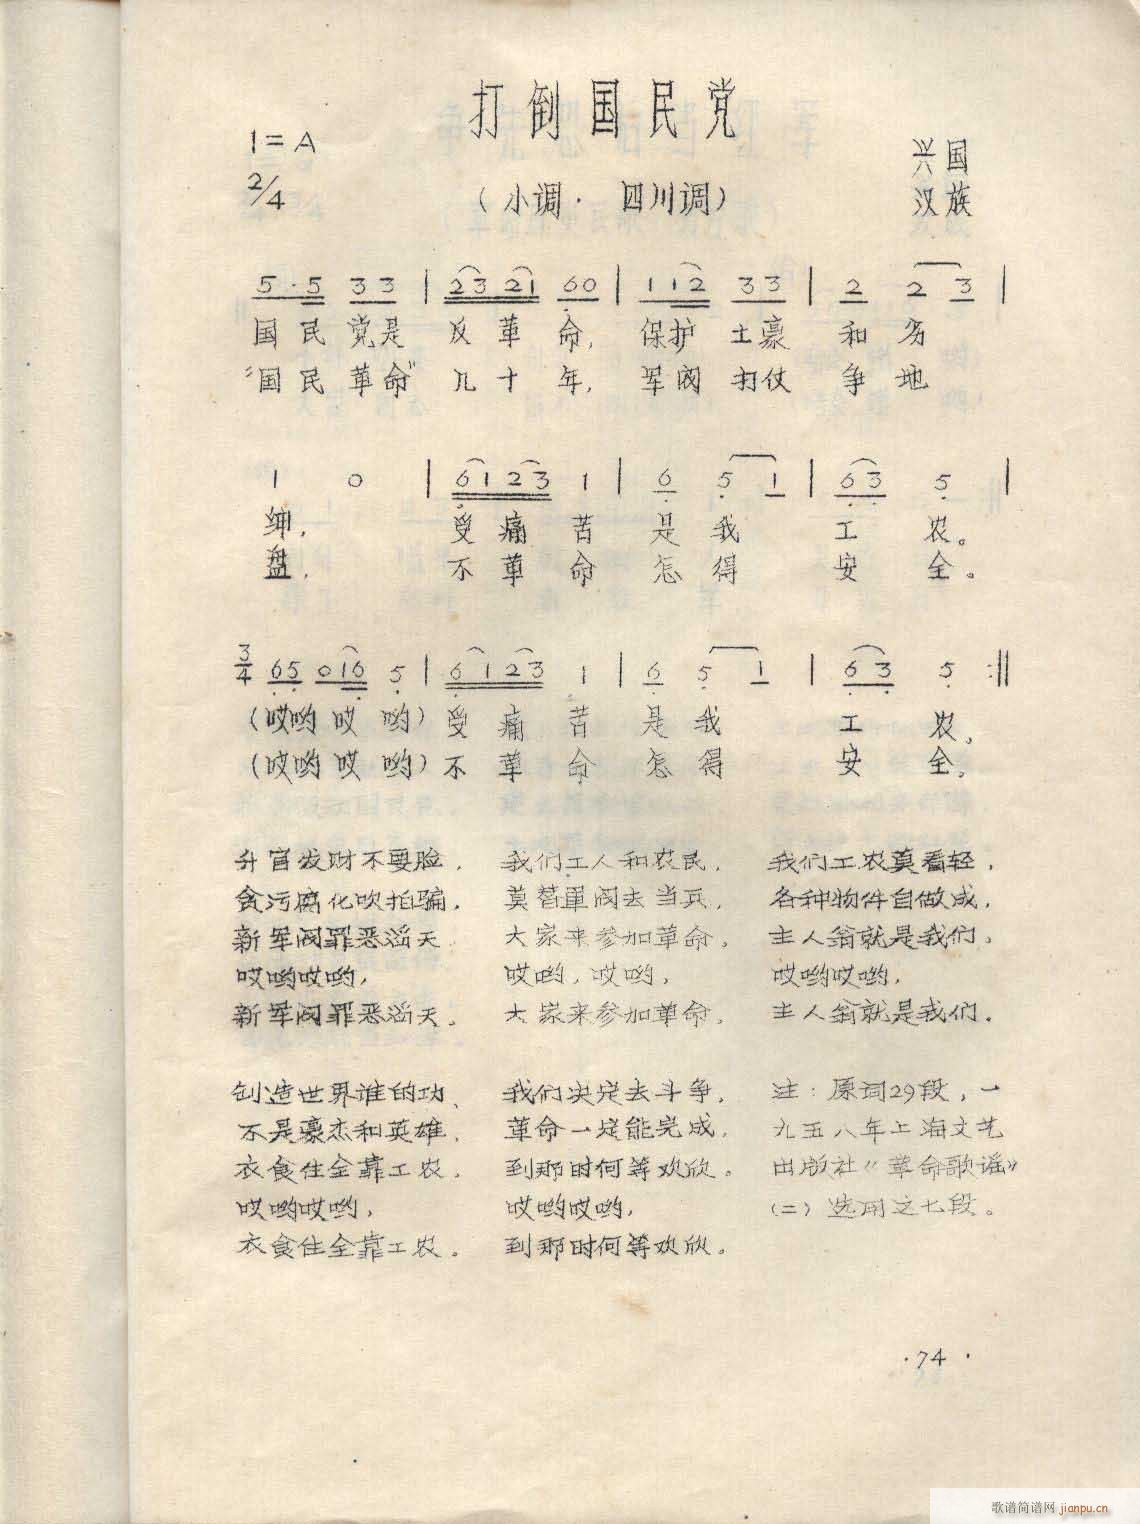 打倒国民党
1=A
兴国
2/4
（小调·四川调）
汉族
5·5 33 | 23 21 60 | 112 33 | 2 2 3 |
国民党是 反革命， 保护土豪 和劣
“国民革命” 几十年， 军阀打仗 争地
1 0 | 6123 1 | 6 5 1 | 63 5 |
绅， 受痛苦 是我 工农。
盘， 不革命 怎得 安全。
3/4 65 016 5 | 6123 1 | 6 5 1 | 63 5 :‖
（哎哟哎哟）受痛苦 是我 工农。
（哎哟哎哟）不革命 怎得 安全。
升官发财不要脸，
贪污腐化吹拍骗，
新军阀罪恶滔天
哎哟哎哟，
新军阀罪恶滔天。
我们工人和农民，
莫替军阀去当兵，
大家来参加革命，
哎哟，哎哟，
大家来参加革命，
我们工农莫看轻，
各种物件自做成，
主人翁就是我们，
哎哟哎哟，
主人翁就是我们。
创造世界谁的功、
不是豪杰和英雄，
衣食住全靠工农，
哎哟哎哟，
衣食住全靠工农。
我们决定去斗争，
革命一定能完成，
到那时何等欢欣。
哎哟哎哟，
到那时何等欢欣。
注：原词29段，一
九五八年上海文艺
出版社《革命歌谣》
（二）选用之七段。
·74·
歌谱简谱网 jianpu.cn